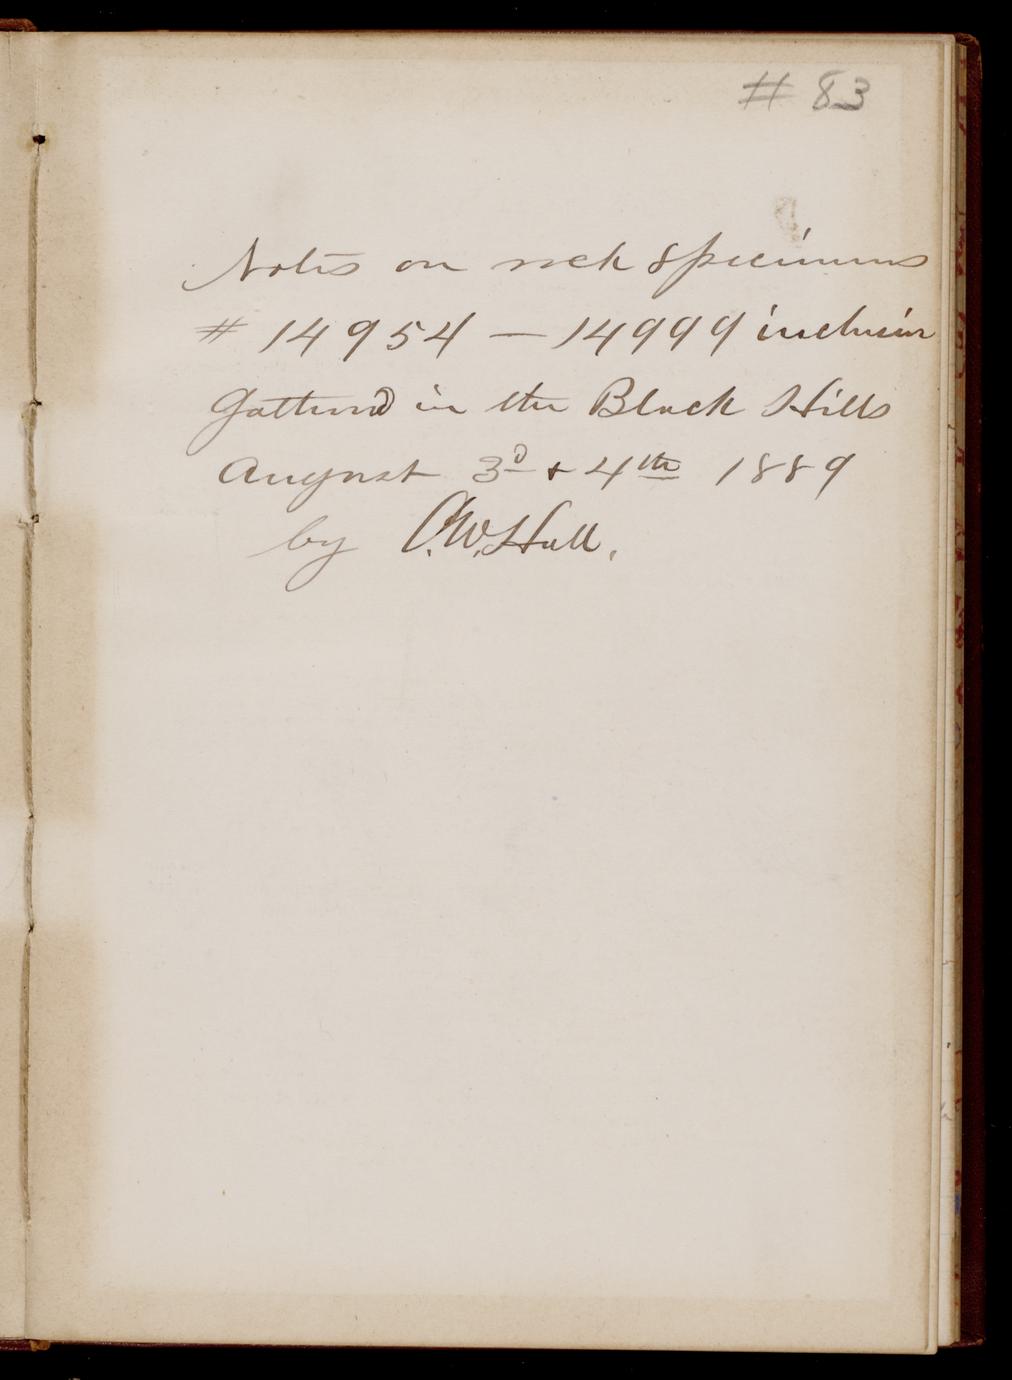 # 83
Notes on rock specimens
# 14954 — 14999 inclusive
Gathered in the Black Hills
August 3d + 4th 1889
by C.W. Hall.